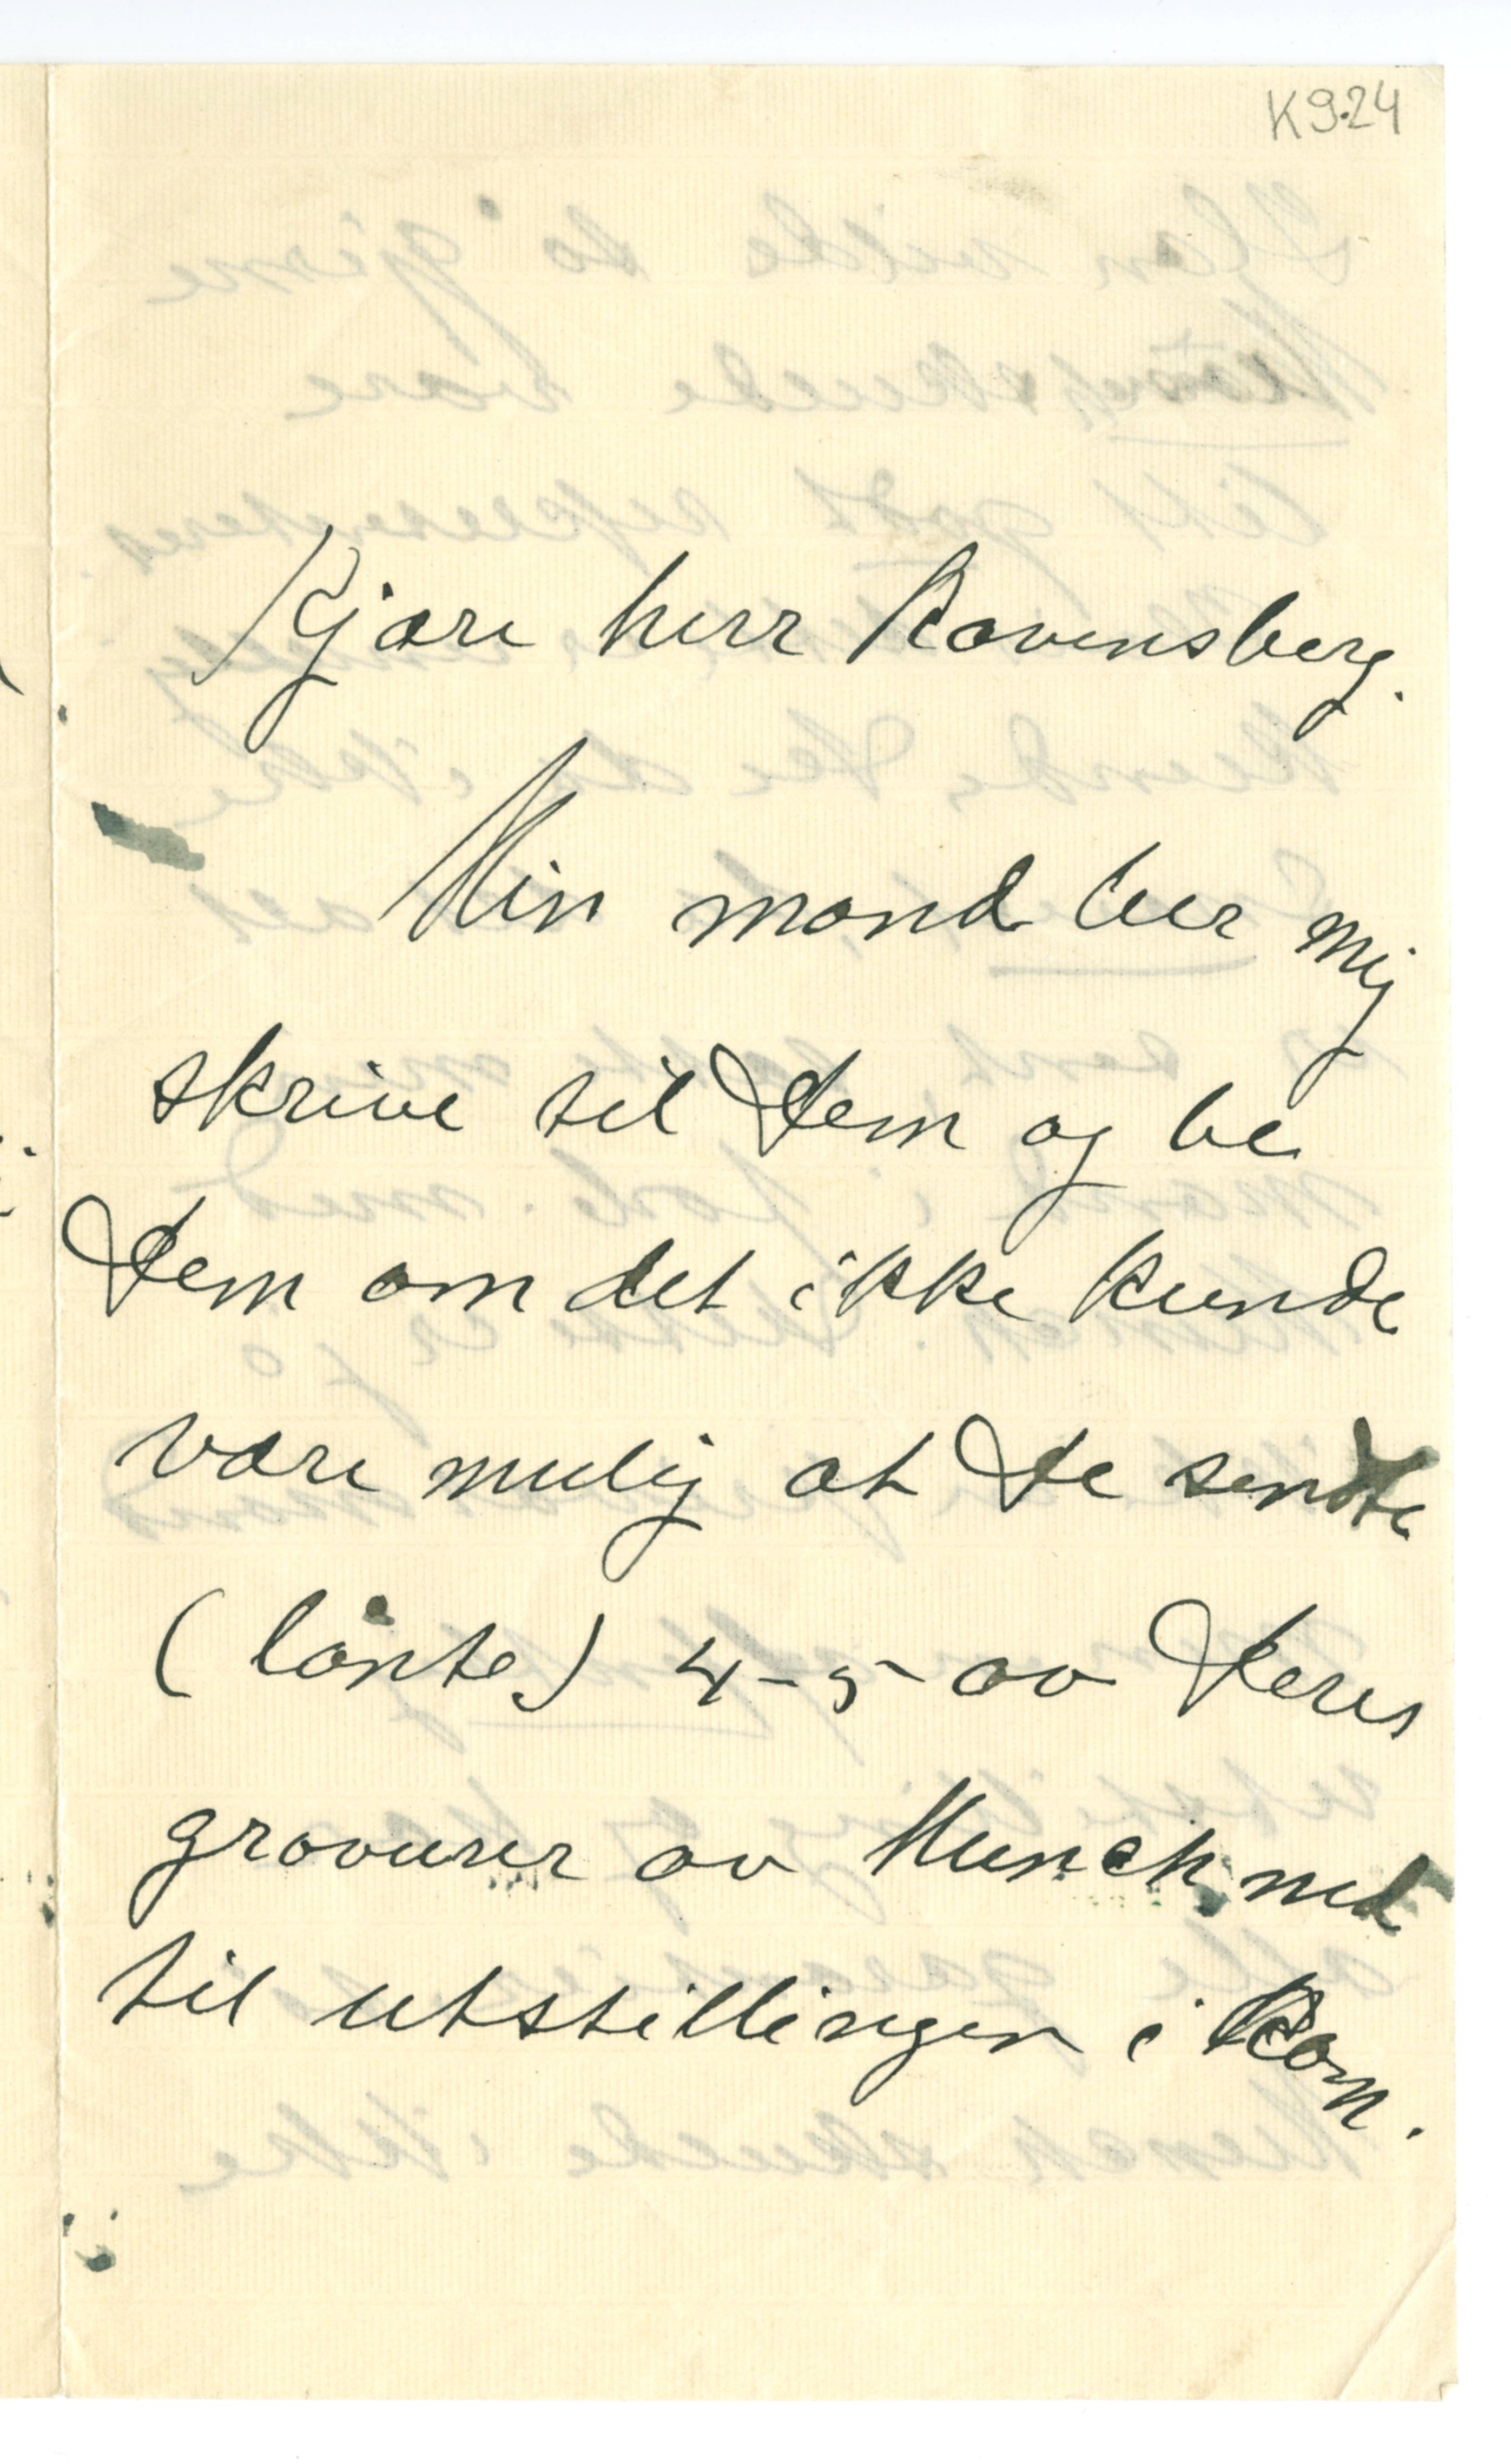 K 9.24
Kjære herr Ravensberg.
Min mand ber mig
skrive til Dem og be
Dem om det ikke kunde
være mulig at De sendte
(lånte) 4-5 av Deres
gravurer av Munch ned
til utstillingen i Rom.